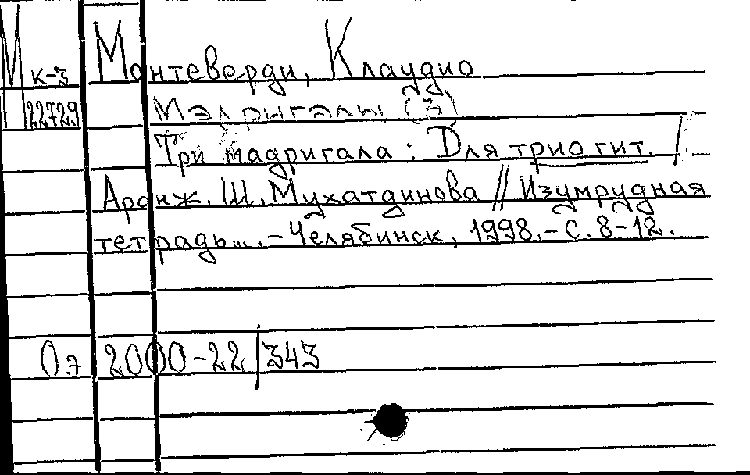 М к-3 Монтеверди, Клаудио
22729 Мадригалы (3)
Три мадригала : Для трио гит. /
Аранж. Ш. Мухатдинова // Изумрудная
тетрадь... - Челябинск, 1998. - С. 8-12.
Оэ 2000-22/343